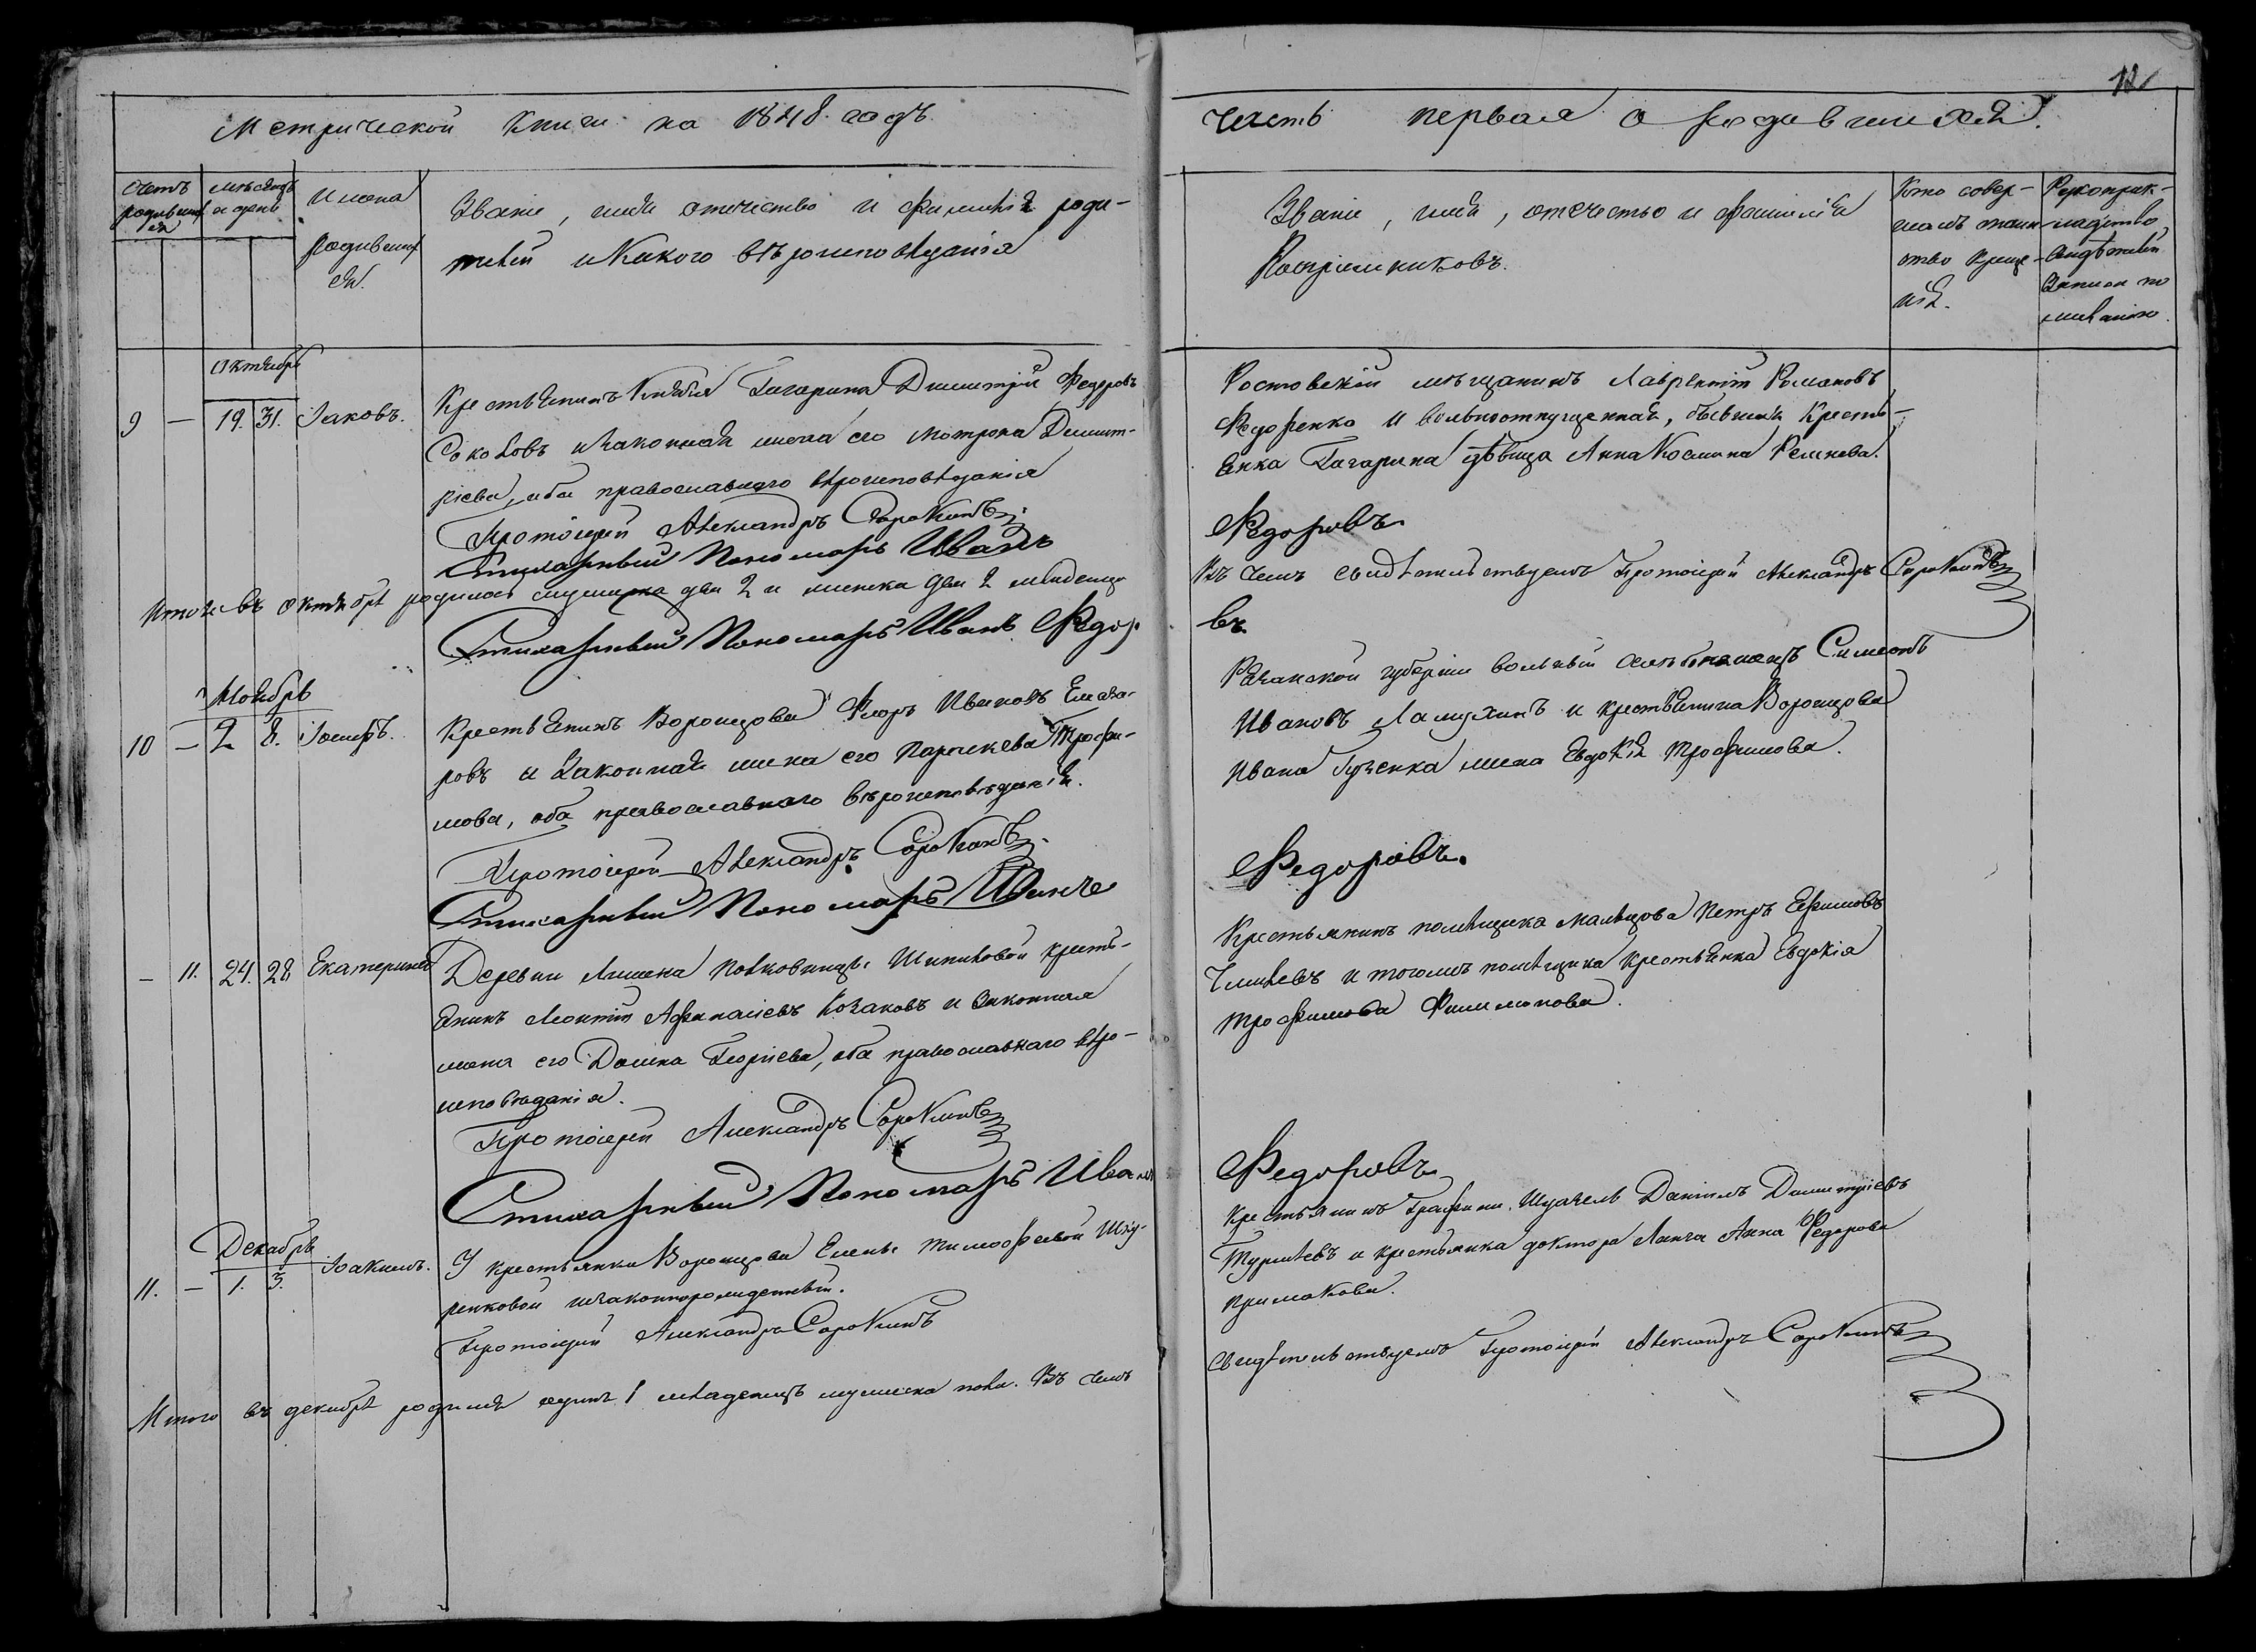 12
Метрической Книги на 1848. годъ
Часть первая о родившихся.
Счетъ родившихся
мѣсяцъ и день
Имена родившихся.
Званіе, имя отчество и фамилія роди-
телей и Какого вѣроисповѣданія
Званіе, имя, отечество и фамилія
Воспріемниковъ.
Кто совер-
шалъ таин-
ство креще-
нія.
Рукоприк-
ладство
свидѣтелей
записи по
желанію.
Октябрь
9 — 19. 31. Іаковъ.
Крестьянинъ Князя Гагарина Димитрій Федоровъ
Соколовъ и законная жена его Матрона Димит-
ріева, оба православнаго вѣроисповѣданія
Протоіерей Александръ Сорокинъ
Стихарный Пономарь Иванъ
Ростовскій мѣщанинъ Лаврентій Романовъ
Федоренко и вольноотпущенная, бывшая Кресть-
янка Гагарина дѣвица Анна Космина
Федоровъ
Итого въ октябрѣ родилось мужеска два 2 и женска два 2 младенца
Въ чемъ свидѣтельствуемъ Протоіерей Александръ Сорокинъ
Стихарный Пономарь Иванъ Федоровъ
Ноябрь
10 — 2 8. Іосифъ.
Крестьянинъ Воронцова Флоръ Ивановъ Елеаза-
ровъ и Законная жена его Параскева Трофи-
мова, оба православнаго вѣроисповѣданія.
Протоіерей Александръ Сорокинъ
Стихарный Пономарь Иванъ
Рязанской губерніи вольный Симеонъ
Ивановъ и крестьянина Воронцова
Ивана жена Евдокія Трофимова.
Федоровъ.
— 11. 24. 28 Екатерина
Деревни кресть-
янинъ Леонтій Афанасіевъ Козаковъ и Законная
жена его Домна Георгіева, оба православнаго вѣро-
исповѣданія.
Протоіерей Александръ Сорокинъ
Стихарный Пономарь Иванъ
Крестьянинъ помѣщика Мальцова Петръ Ефимовъ
и тогожъ помѣщика крестьянка Евдокія
Трофимова Филимонова.
Федоровъ
Декабрь
11. — 1. 5. Іоакимъ.
У крестьянки Воронцова Елены Тимофеевой
ренковой незаконнорожденный.
Протоіерей Александръ Сорокинъ
Крестьянинъ Графини Шуазель Даніилъ Димитріевъ
и крестьянка доктора Ланга Анна Федорова
Примакова.
Итого въ декабрѣ родился одинъ 1 младенецъ мужеска пола. Въ чемъ
свидѣтельствуемъ Протоіерей Александръ Сорокинъ